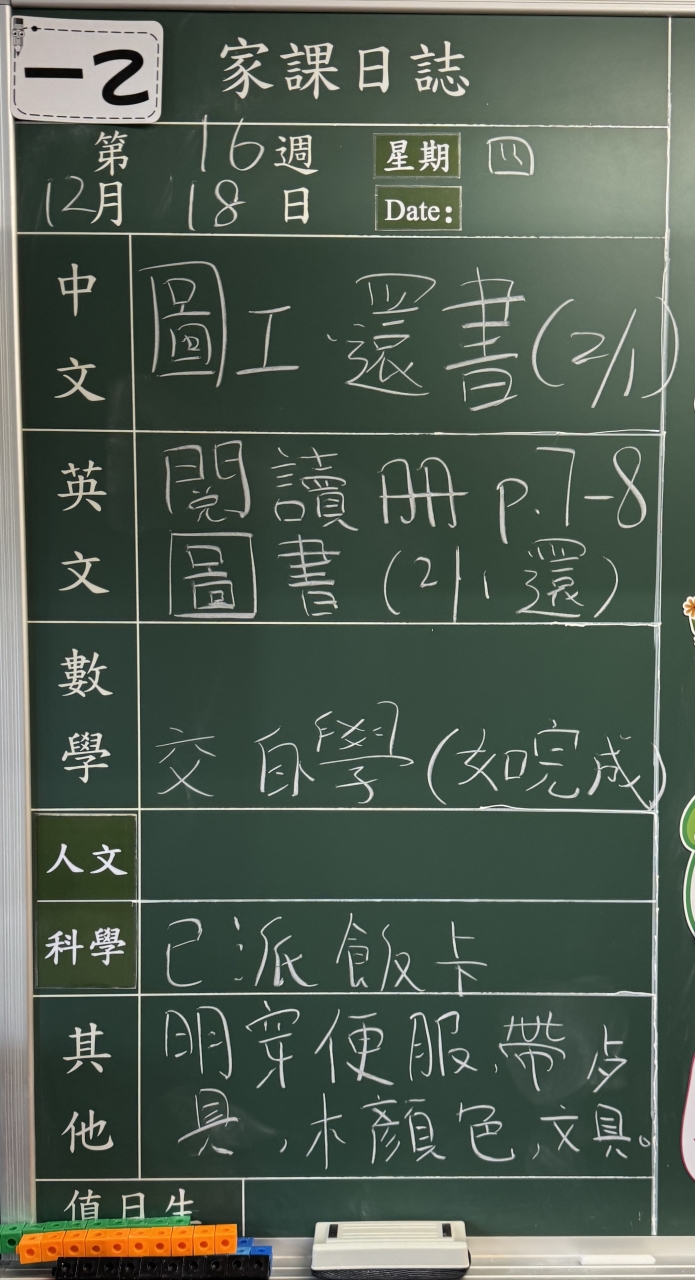 一乙
家課日誌
第 16 週 星期 四
12月 18日 Date:
中文
圖工.還書(2/1)
英文
閱讀冊 p.7-8
圖書(2/1還)
數學
交自學(如完成)
人文
科學
已派飯卡
其他
明穿便服、帶
具,木顏色、文具。
值日生